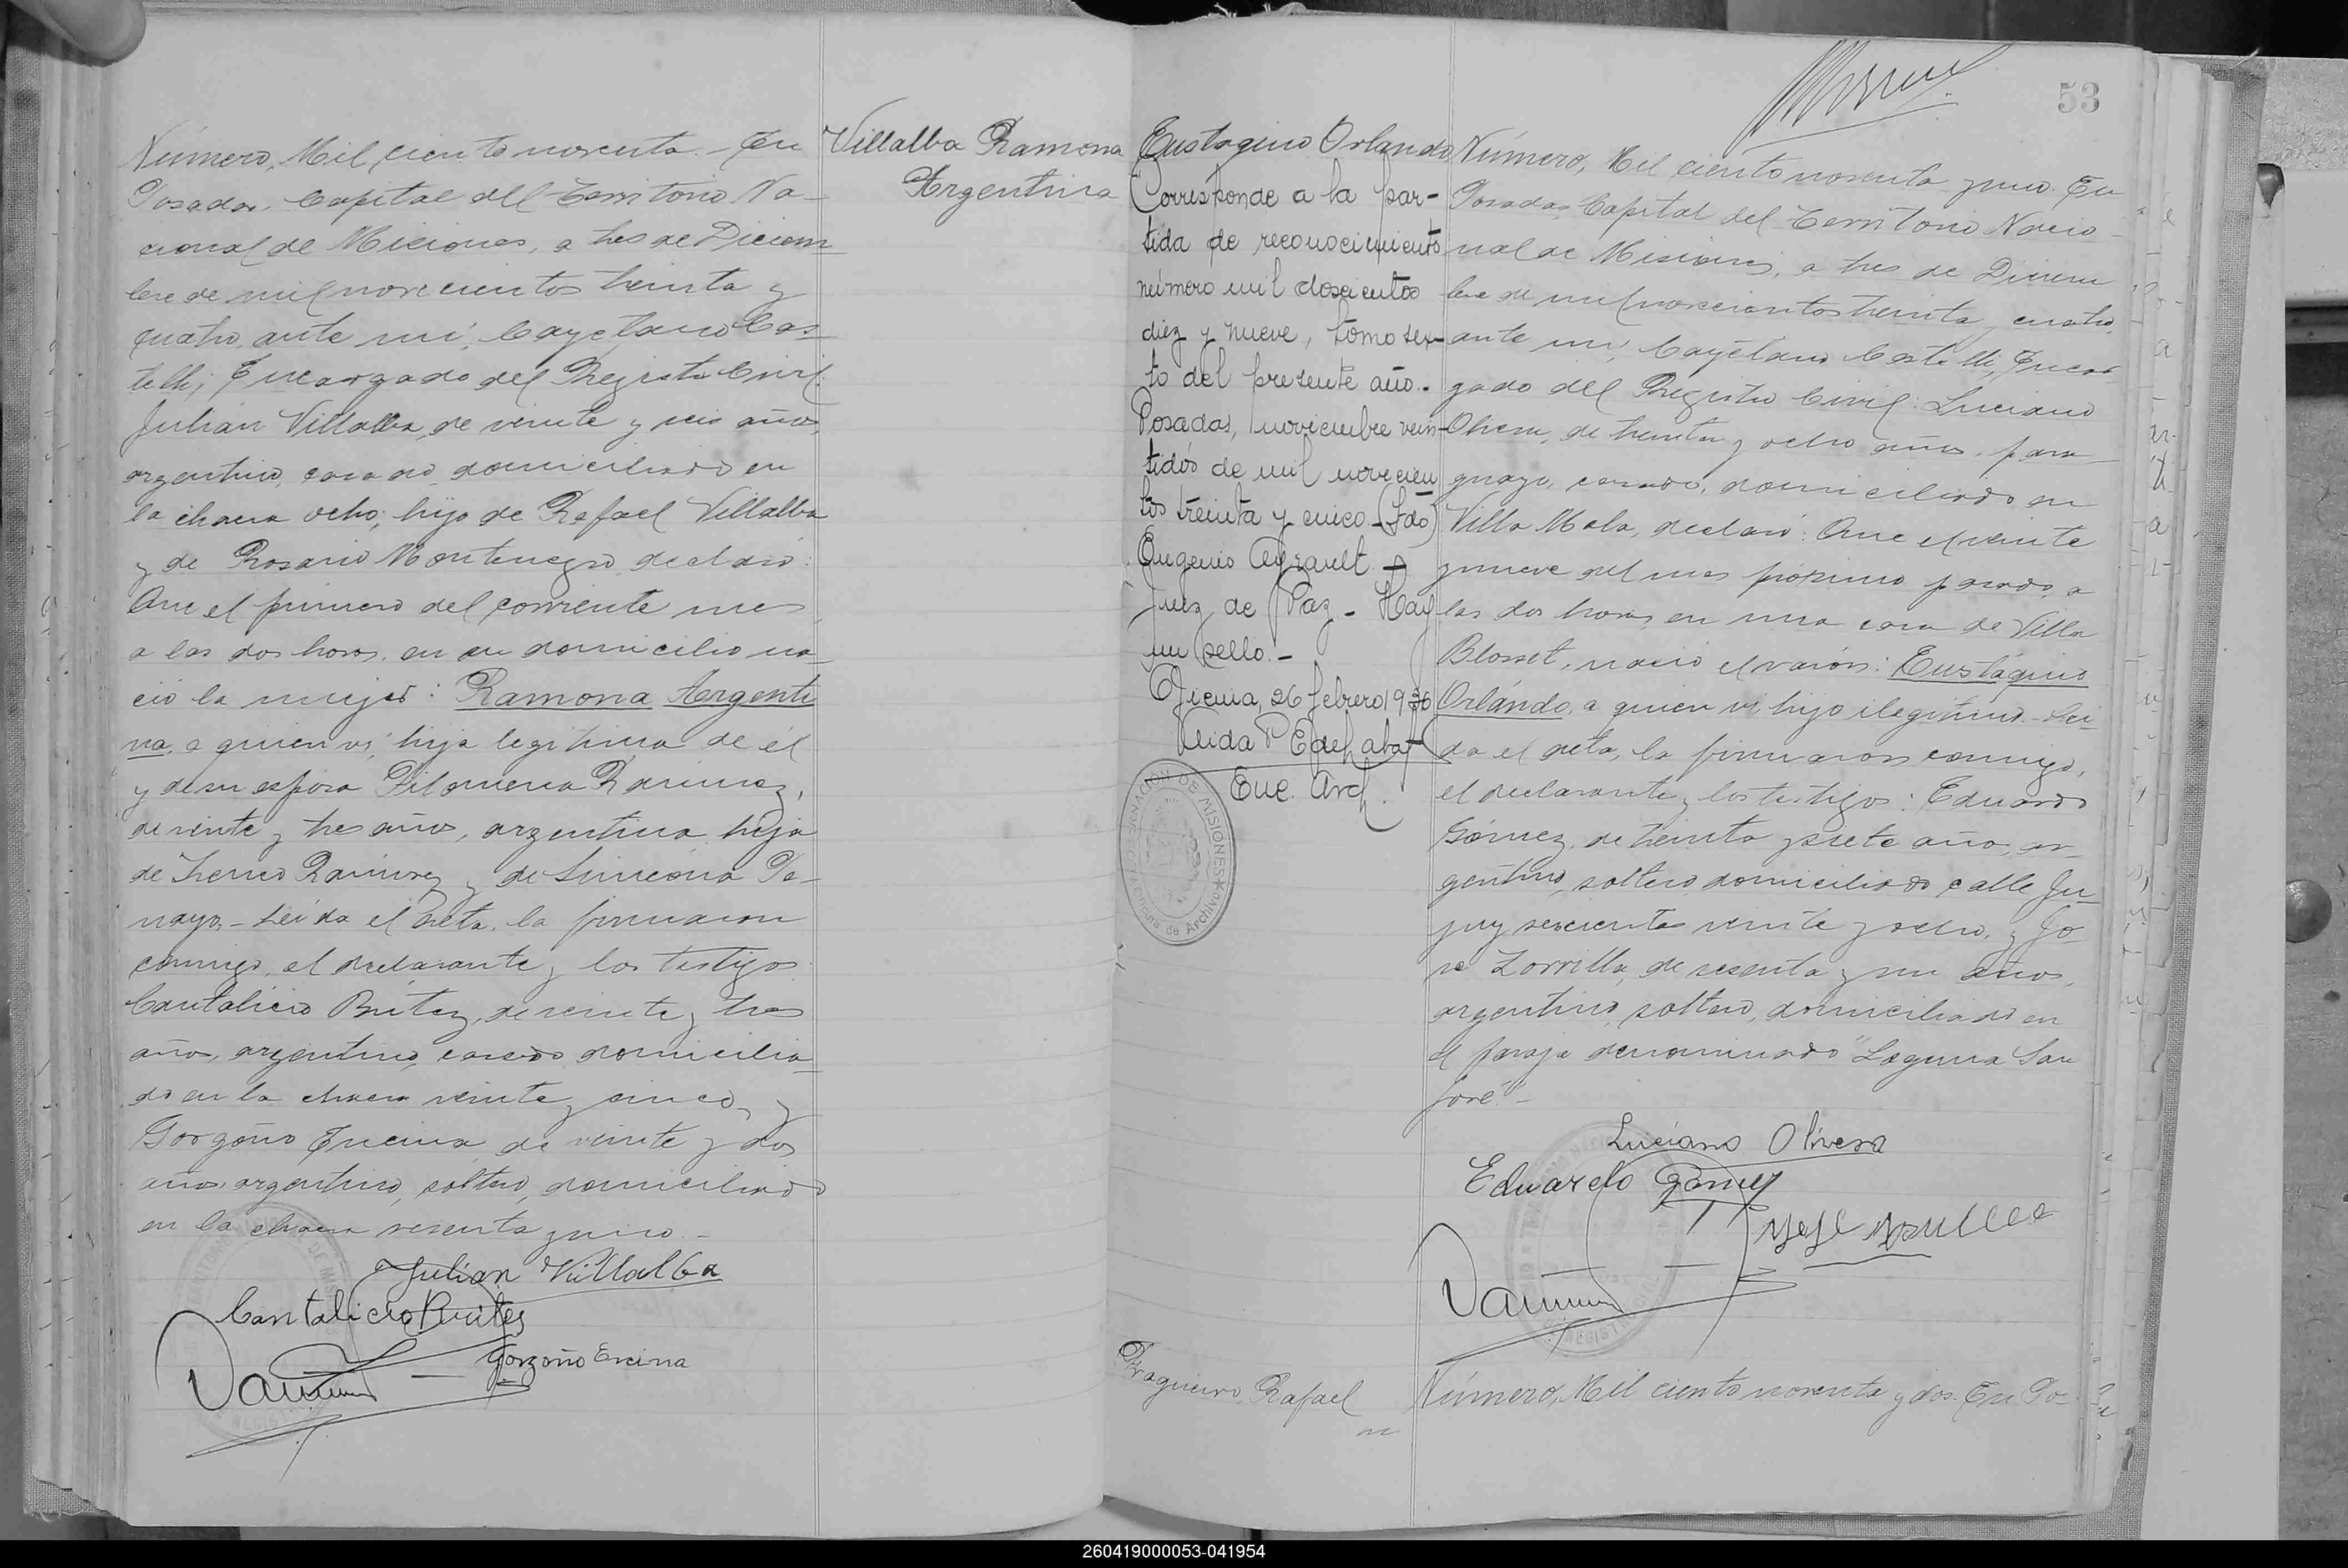 Villalba Ramona
Argentina
Número, Mil ciento noventa. - En
Posadas, Capital del Territorio Na-
cional de Misiones, a tres de Diciem-
bre de mil novecientos treinta y
cuatro, ante mí, Cayetano Cas-
telli, Encargado del Registro Civil:
Julián Villalba, de veinte y seis años,
argentino, casado, domiciliado en
la chacra ocho, hijo de Rafael Villalba
y de Rosario Montenegro, declaró:
Que el primero del corriente mes
a las dos horas, en su domicilio na-
ció la mujer: Ramona Argenti
na, a quien vi, hija legítima de él
y de su esposa Filomena Ramirez,
de veinte y tres años, argentina, hija
de Ramirez y de Simeona
Leída el acta, la firmaron
conmigo, el declarante y los testigos
Cantalicio Britez, de veinte y tres
años, argentino, casado, domicilia-
do en la chacra veinte y cinco, y
Gorgoño Encina, de veinte y dos
años, argentino, soltero, domiciliado
en la chacra sesenta y uno. -
Julian Villalba
Cantalicio Brites
Gorgoño Encina
53
Eustaquio Orlando
Corresponde a la par-
tida de reconocimiento
número mil doscientos
diez y nueve, tomo sex-
to del presente año. -
Posadas, noviembre vein-
tidós de mil novecien
tos treinta y cinco. - (Fdo)
Eugenio Ayrault. -
Juez de Paz - Hay
un sello. -
26 febrero 1936
Enc. Arch.
Número, Mil ciento noventa y uno. En
Posadas, Capital del Territorio Nacio-
nal de Misiones, a tres de Diciem
bre de mil novecientos treinta y cuatro,
ante mí, Cayetano Castelli, Encar
gado del Registro Civil: Luciano
Olivera, de treinta y ocho años, para-
guayo, casado, domiciliado en
Villa Mola, declaró: Que el veinte
y nueve del mes próximo pasado, a
las dos horas, en una casa de Villa
Blosset, nació el varón: Eustaquio
Orlándo, a quien vi, hijo ilegítimo. - Leí-
da el acta, la firmaron conmigo,
el declarante y los testigos: Eduardo
Gómez, de treinta y siete años, ar-
gentino, soltero, domiciliado calle Ju-
juy seiscientos veinte y ocho, y Jo-
sé Zorrilla, de sesenta y un años,
argentino, soltero, domiciliado en
el paraje denominado "Laguna San
José" -
Luciano Olivera
Eduardo Gómez
Fragueiro Rafael
Número, Mil ciento noventa y dos. En Po-
260419000053-041954